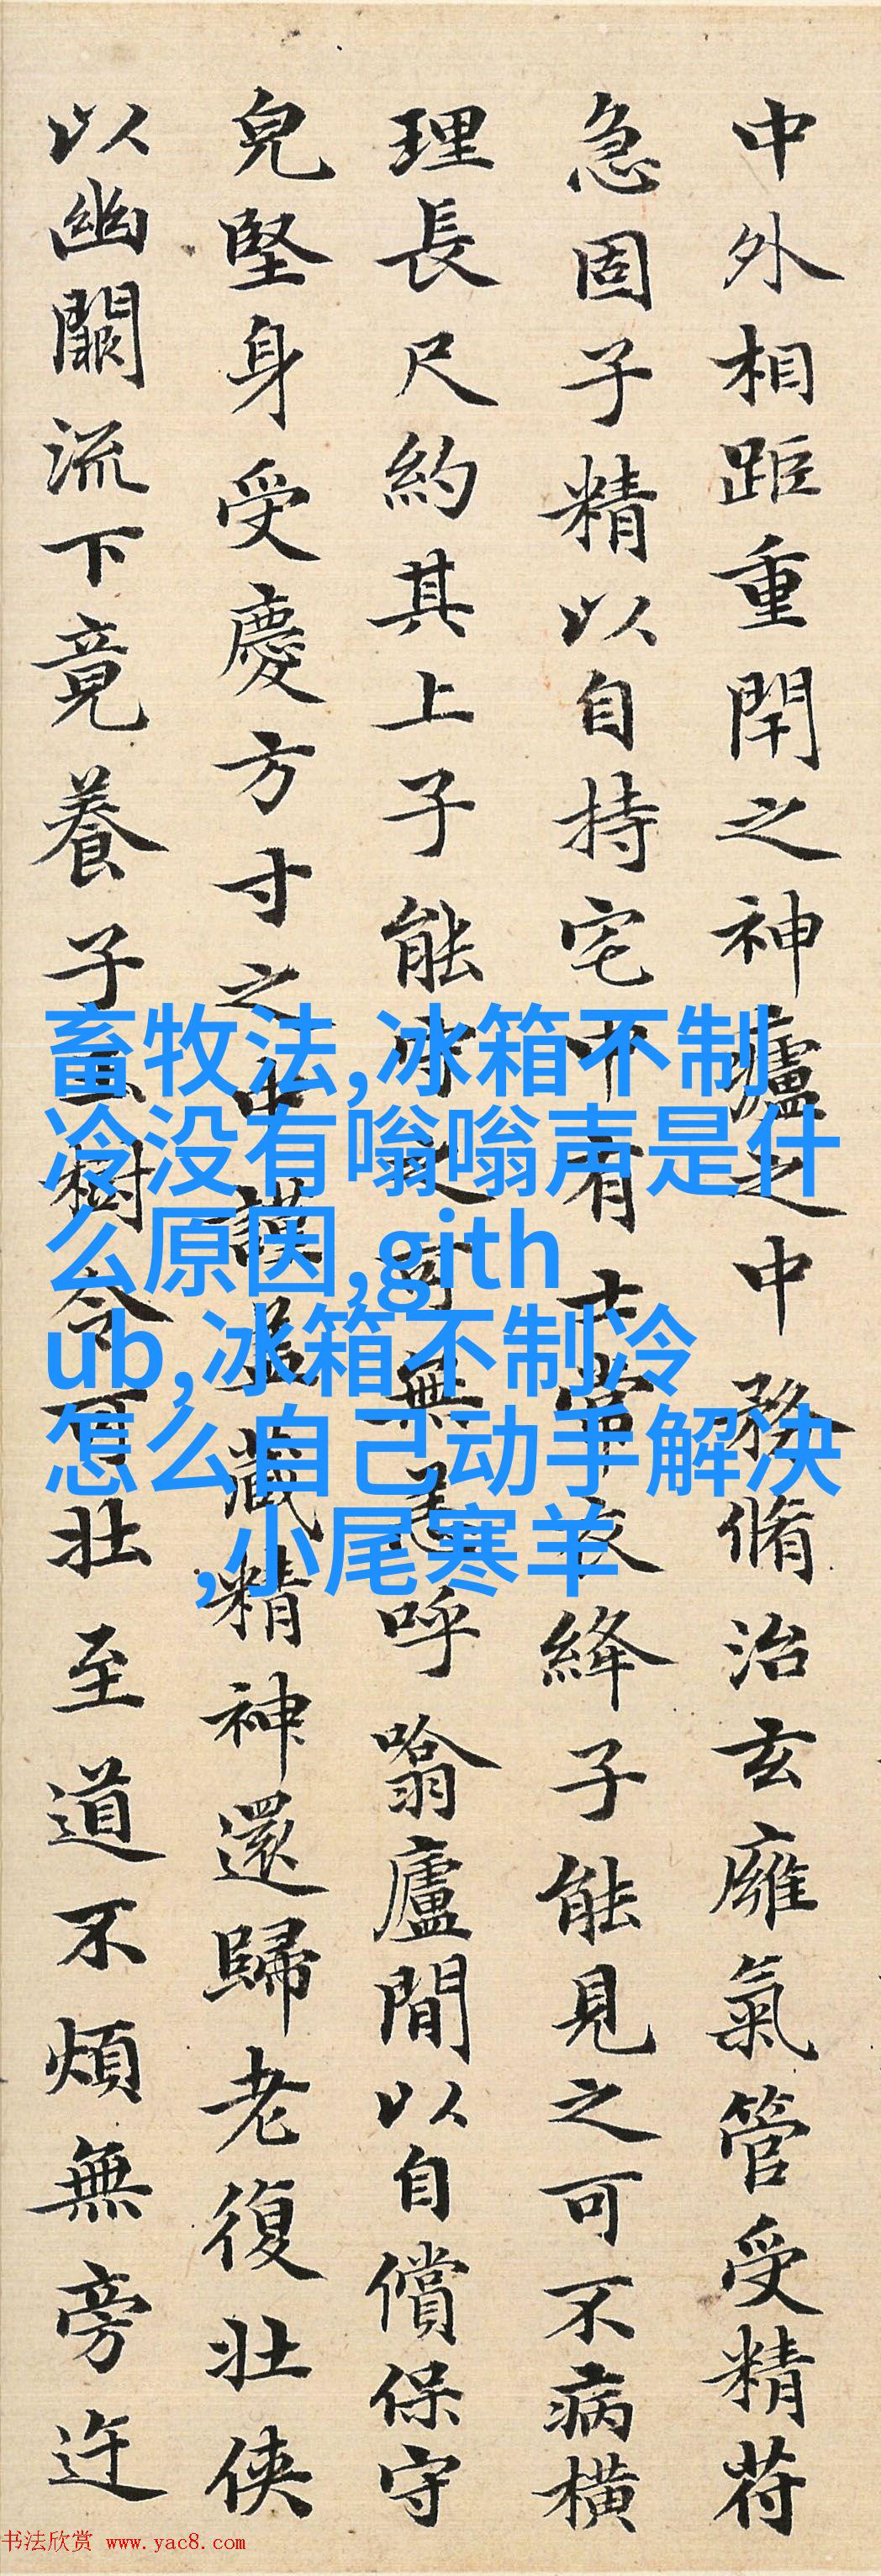 中外相距重閇之神廬之中務脩治玄廱氣管受精苻
急固子精以自持宅中有士常衣絳子能見之可不病橫
理長尺約其上子能守之可無恙呼噏廬間以自償保守
皃堅身受慶方寸之中謹蓋藏精神還歸老復壯俠
以幽闕流下竟養子玉樹令可壯至道不煩無旁迕
畜牧法,冰箱不制
冷没有嗡嗡声是什
么原因,gith
ub,冰箱不制冷
怎么自己动手解决
,小尾寒羊
书法欣赏 www.yac8.com